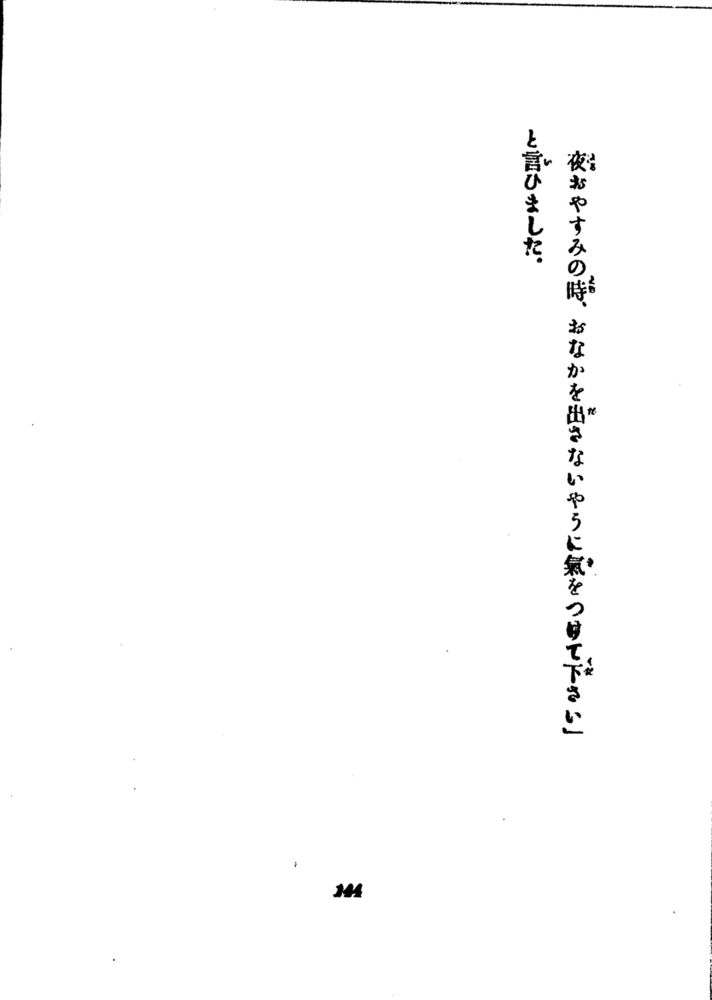 夜おやすみの時、おなかを出さないやうに氣をつけて下さい」
と言ひました。
144